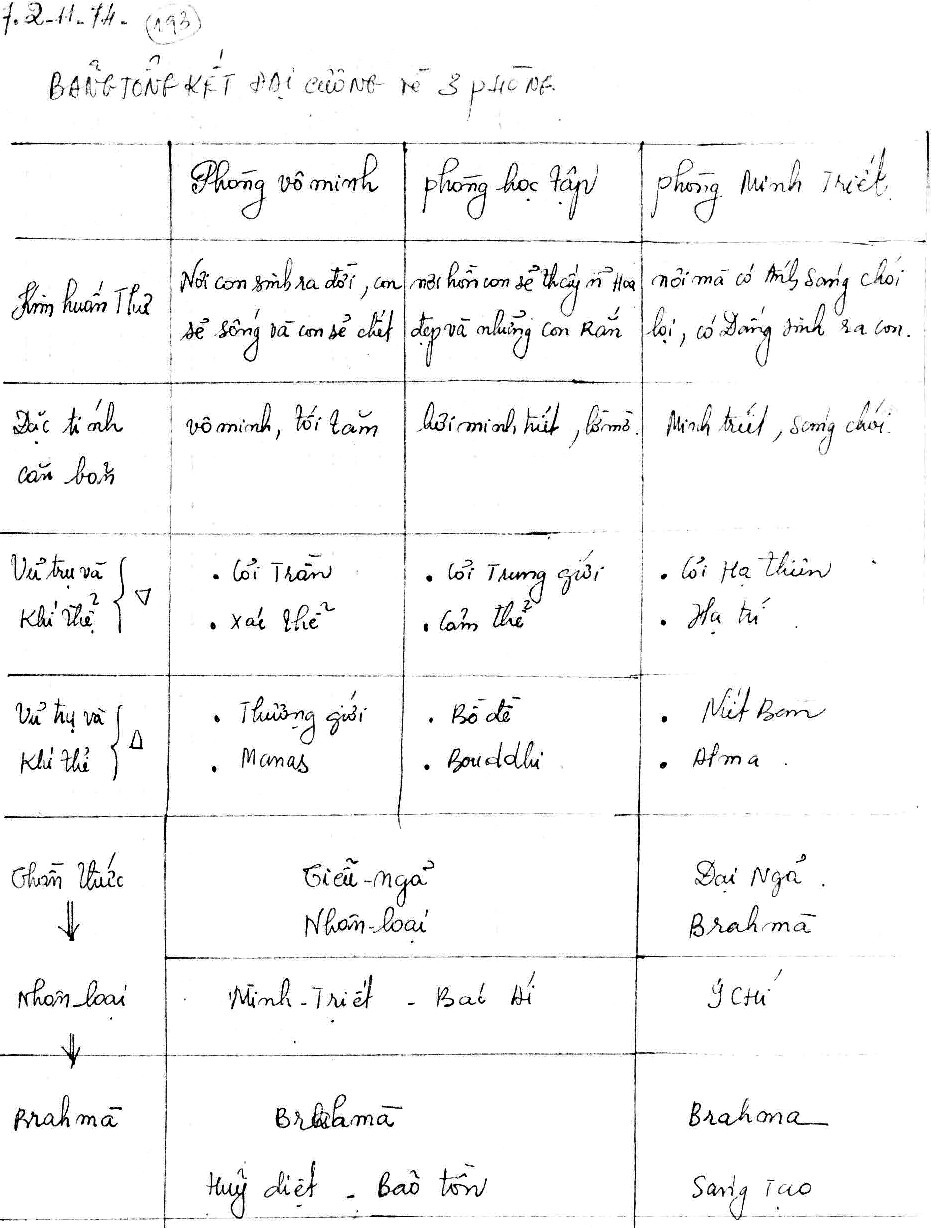 7. 2-11-74. (193)
BẢNG TỔNG KẾT ĐẠI CƯƠNG VỀ 3 PHÒNG.
Phòng vô minh phòng học tập phòng Minh Triết.
Kim huấn Thư
Nơi con sinh ra đời, con
sẻ sống và con sẻ chết
nơi hồn con sẻ thấy n Hoa
đẹp và những con Rắn
nơi mà có Ánh Sáng chói
lọi, có Đấng sinh ra con.
Đặc tính
căn bản
vô minh, tối tăm minh triết, lờ mờ. Minh triết, sáng chói.
Vủ trụ và
Khí thể ▽
• Cỏi Trần
• Xác thể
• Cỏi Trung giới
• Cảm thể
• Cỏi Hạ thiên
• Hạ trí
Vủ trụ và
Khí thể △
• Thượng giới
• Manas
• Bồ đề
• Bouddhi
• Niết Bàn
• Atma.
Chân thức
⇓
Tiểu-ngả
Nhân-loại
Đại Ngả.
Brahmā
Nhân-loại Minh-Triết - Bác Ái Ý CHÍ
⇓
Brahmā Brahmā Brahma
Huỷ diệt - Bảo tồn Sáng Tạo